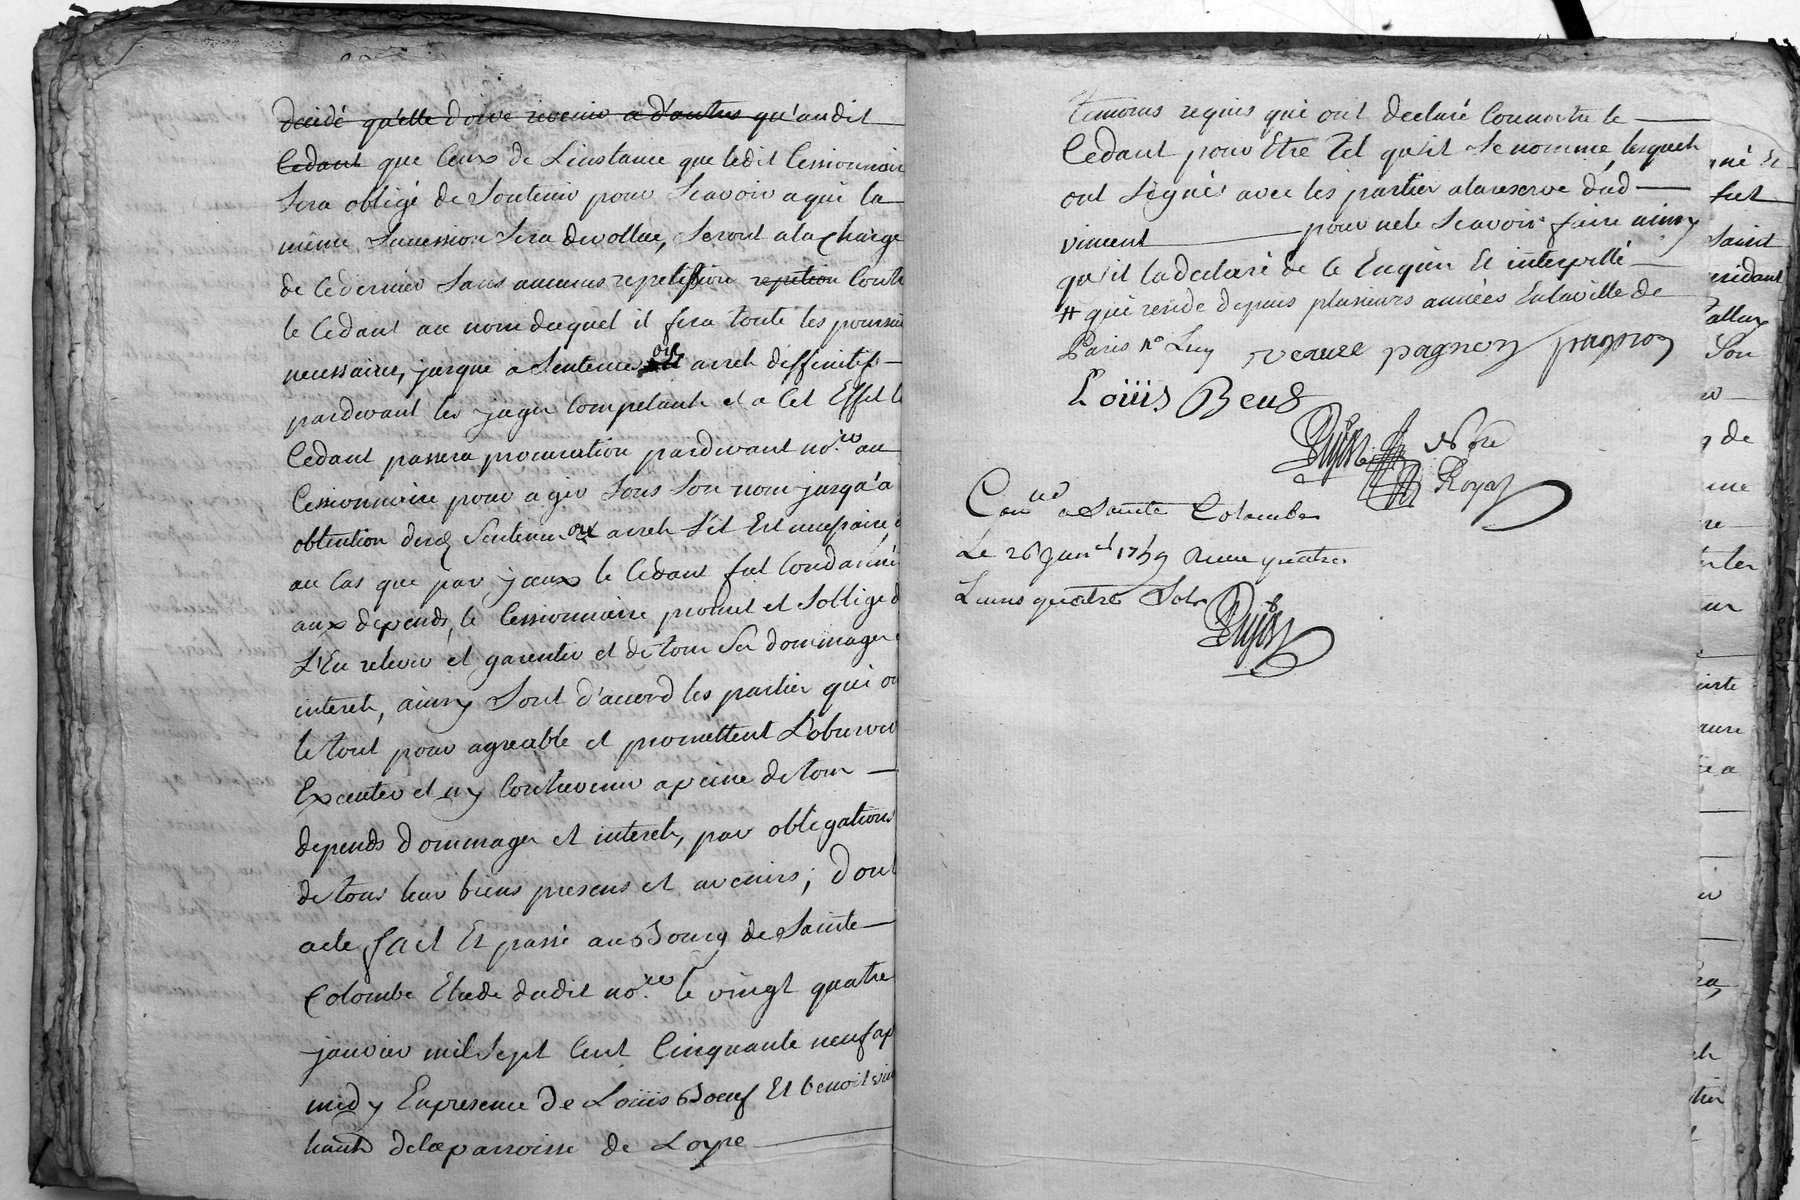 decidé qu'elle doive revenir a d'autres qu'audit
Cedant que Ceux de L'instance que ledit Cessionnair
Sera obligé de Soutenir pour Scavoir a qui la
même Succession Sera devollue, Seront a la Charge
de Ce dernier Sans aucunes repetission repetion Contre
le Cedant au nom duquel il fera toute les poursui
necessaires, jusque a Sentences ou arrets diffinitifs
pardevant les juges Competants et a Cet Effet le
Cedant passera procuration pardevant no.re au
Cessionnaire pour agir Sous Son nom jusqu'a
obtention desd Sentences ou arrets S'il Est necessaire,
au Cas que par jceux le Cedant fut Condamné
aux depends, le Cessionnaire promet et S'obligé d
L'En relever et garentir et de tous Ses dommages
interets, ainsy Sont d'accord les parties qui on
le tout pour agreable et promettent L'observer
Executer et n'y Contrevenir a peine de tous
depends dommages et interets, par obligations
de tous leur biens presens et avenirs; Dont
acte fait Et passé au Bourg de Sainte
Colombe Etude dudit no.re le vingt quatre
janvier mil Sept Cent Cinquante neuf ap
midy En presence de Loüis Boeuf Et benoit vin
hants de la parroisse de Loyre
temoins requis qui ont declaré Connoitre le
Cedant pour Etre Tel qu'il Se nomme, lesquels
ont Signés avec les parties a la reserve dud
vincent pour ne le Scavoir faire ainsy
qu'il la declaré de Ce Enquis Et interpellé
# qui reside depuis plusieurs années En la ville de
Paris pagnon pagnon
Loüis Beuf
Dujost No.re
Royal
Con.llé a Sainte Colombe
Le 26 Janv.r 1759 Recu quatre
Livres quatre Sols
Dujost